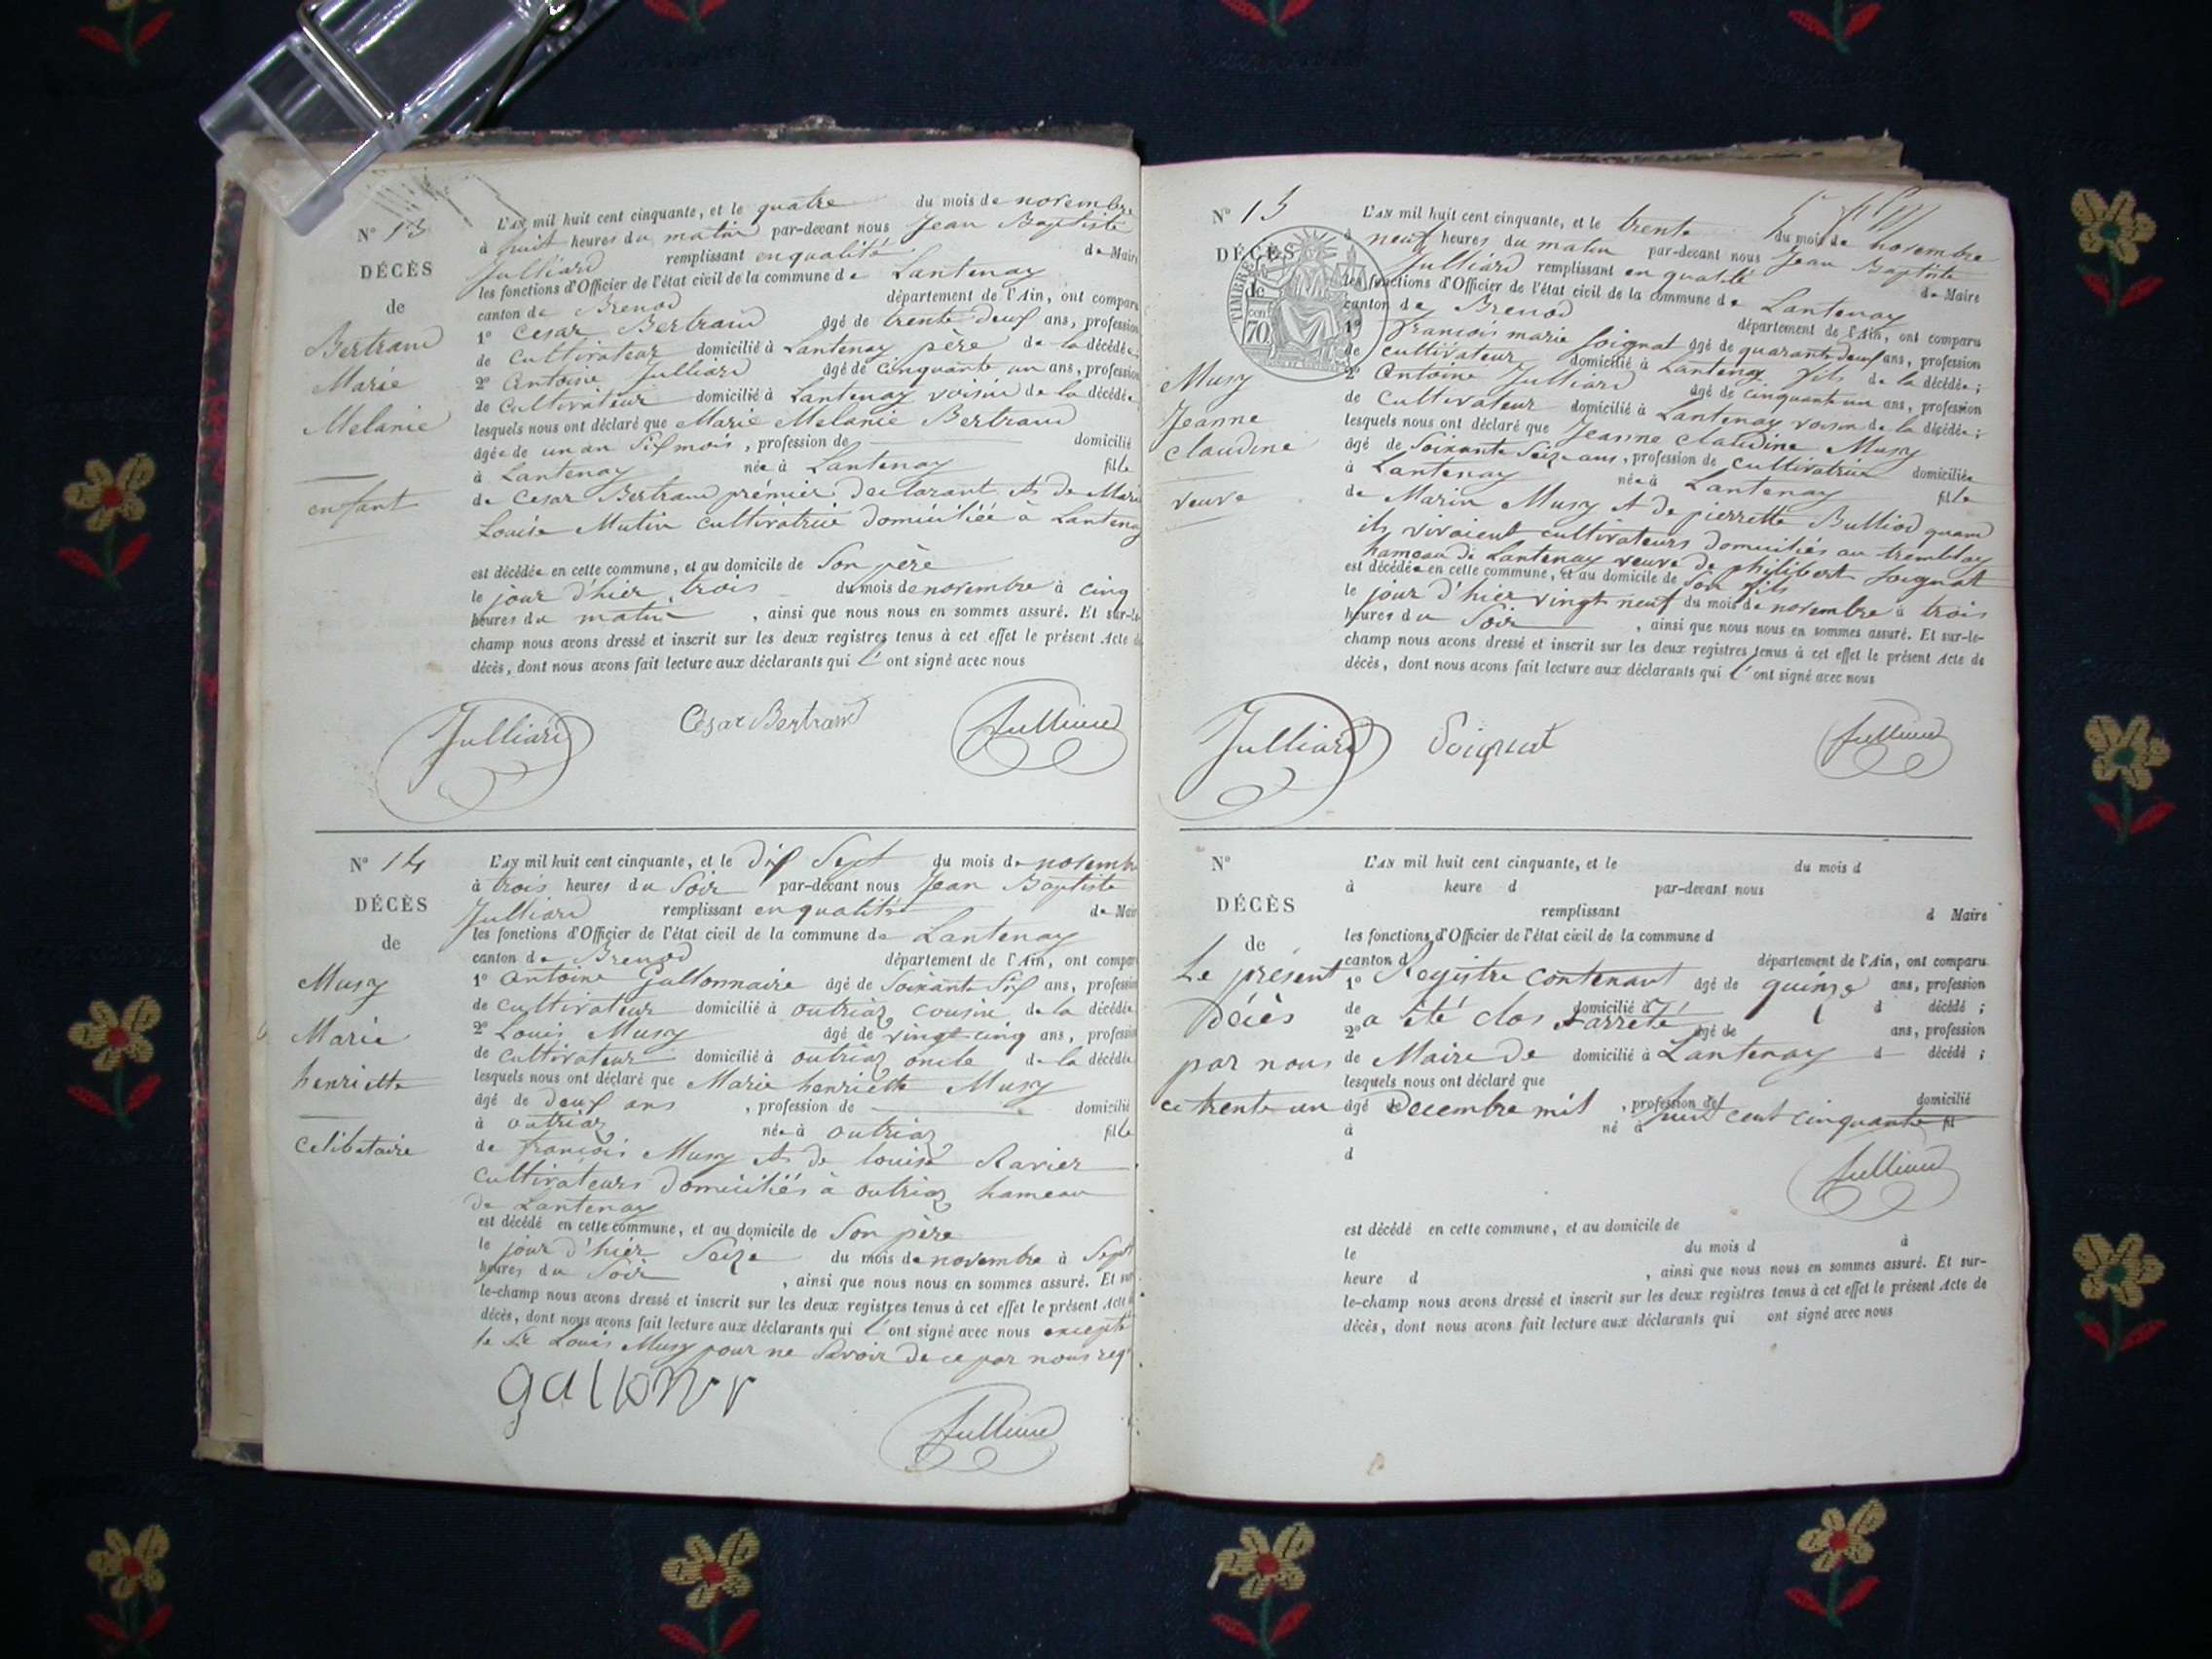 N° 13
DÉCÈS
de
Bertrand
Marie
Melanie
enfant
L'AN mil huit cent cinquante, et le quatre du mois de novembre
à huit heures du matin par-devant nous Jean Baptiste
Julliard remplissant en qualité de Maire
les fonctions d'Officier de l'état civil de la commune de Lantenay
canton de Brenod département de l'Ain, ont comparu
1° Cesar Bertrand âgé de trente deux ans, profession
de Cultivateur domicilié à Lantenay père de la décédée
2° Antoine Julliard âgé de cinquante un ans, profession
de Cultivateur domicilié à Lantenay voisin de la décédée
lesquels nous ont déclaré que Marie Melanie Bertrand
âgée de un an Six mois, profession de domicilié
à Lantenay née à Lantenay fille
de Cesar Bertrand prémier declarant et de Marie
Louise Mutin cultivatrice domiciliée à Lantenay
est décédée en cette commune, et au domicile de Son père
le jour d'hier trois du mois de novembre à cinq
heures du matin, ainsi que nous nous en sommes assuré. Et sur-le-
champ nous avons dressé et inscrit sur les deux registres tenus à cet effet le présent Acte de
décès, dont nous avons fait lecture aux déclarants qui l'ont signé avec nous
Julliard Cesar Bertrand Julliard
N° 14
DÉCÈS
de
Musy
Marie
henriette
celibataire
L'AN mil huit cent cinquante, et le dix Sept du mois de novembre
à trois heures du Soir par-devant nous Jean Baptiste
Julliard remplissant en qualité de Maire
les fonctions d'Officier de l'état civil de la commune de Lantenay
canton de Brenod département de l'Ain, ont comparu
1° Antoine Gallonnaire âgé de Soixante Six ans, profession
de Cultivateur domicilié à outriaz cousin de la décédée
2° Louis Musy âgé de vingt cinq ans, profession
de Cultivateur domicilié à outriaz oncle de la décédée
lesquels nous ont déclaré que Marie henriette Musy
âgé de deux ans, profession de domicilié
à outriaz née à outriaz fille
de françois Musy et de louise Ravier
Cultivateurs domiciliés à outriaz hameau
de Lantenay
est décédé en cette commune, et au domicile de Son père
le jour d'hier Seize du mois de novembre à Sept
heures du Soir, ainsi que nous nous en sommes assuré. Et sur-
le-champ nous avons dressé et inscrit sur les deux registres tenus à cet effet le présent Acte de
décès, dont nous avons fait lecture aux déclarants qui l'ont signé avec nous excepté
le Sr Louis Musy pour ne Savoir de ce par nous req
Julliard
N° 15
DÉCÈS
de
TIMBRE
70
Musy
Jeanne
claudine
veuve
L'AN mil huit cent cinquante, et le trente du mois de novembre
à neuf heures du matin par-devant nous Jean Baptiste
Julliard remplissant en qualité de Maire
les fonctions d'Officier de l'état civil de la commune de Lantenay
canton de Brenod département de l'Ain, ont comparu
1° françois marie Soignat âgé de quarante deux ans, profession
de cultivateur domicilié à Lantenay fils de la décédée;
2° Antoine Julliard âgé de cinquante un ans, profession
de Cultivateur domicilié à Lantenay voisin de la décédée;
lesquels nous ont déclaré que Jeanne claudine Musy
âgé de Soixante Seize ans, profession de cultivatrice domiciliée
à Lantenay née à Lantenay fille
de Marin Musy et de pierrette Bulliod quand
ils vivaient cultivateurs domiciliés au tremblay
hameau de Lantenay veuve de philibert Soignat
est décédée en cette commune, et au domicile de Son fils
le jour d'hier vingt neuf du mois de novembre à trois
heures du Soir, ainsi que nous nous en sommes assuré. Et sur-le-
champ nous avons dressé et inscrit sur les deux registres tenus à cet effet le présent Acte de
décès, dont nous avons fait lecture aux déclarants qui l'ont signé avec nous
Julliard Soignat Julliard
N°
DÉCÈS
de
L'AN mil huit cent cinquante, et le du mois d
à heure d par-devant nous
remplissant d Maire
les fonctions d'Officier de l'état civil de la commune d
canton d département de l'Ain, ont comparu
Le présent 1° Registre contenant âgé de quinze ans, profession
décès de domicilié à d décédé;
2° a été clos et arrêté âgé de ans, profession
par nous de Maire de domicilié à Lantenay d décédé;
lesquels nous ont déclaré que
ce trente un âgé de Decembre mil, profession de huit cent cinquante domicilié
à né à fil
d
Julliard
est décédé en cette commune, et au domicile de
le du mois d à
heure d, ainsi que nous nous en sommes assuré. Et sur-
le-champ nous avons dressé et inscrit sur les deux registres tenus à cet effet le présent Acte de
décès, dont nous avons fait lecture aux déclarants qui ont signé avec nous